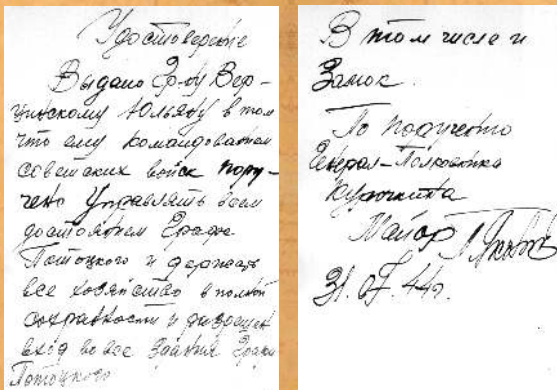 Удостоверение
Выдано Гр-ну Вер-
цинскому Юльяну в том
что ему командованием
советских войск пору-
чено Управлять всем
достоянием Графа
Потоцкого и держать
все хозяйство в полной
сохранности и разрешен
вход во все здания Графа
Потоцкого
В том числе и
Замок.
По поручению
Генерал-Полковника
Курочкина
Майор
31.07.44г.